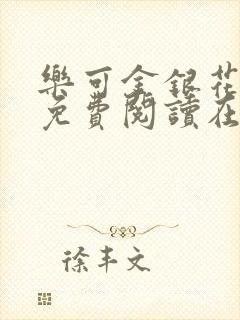 樂可金銀花
免費閱讀在
徐丰文